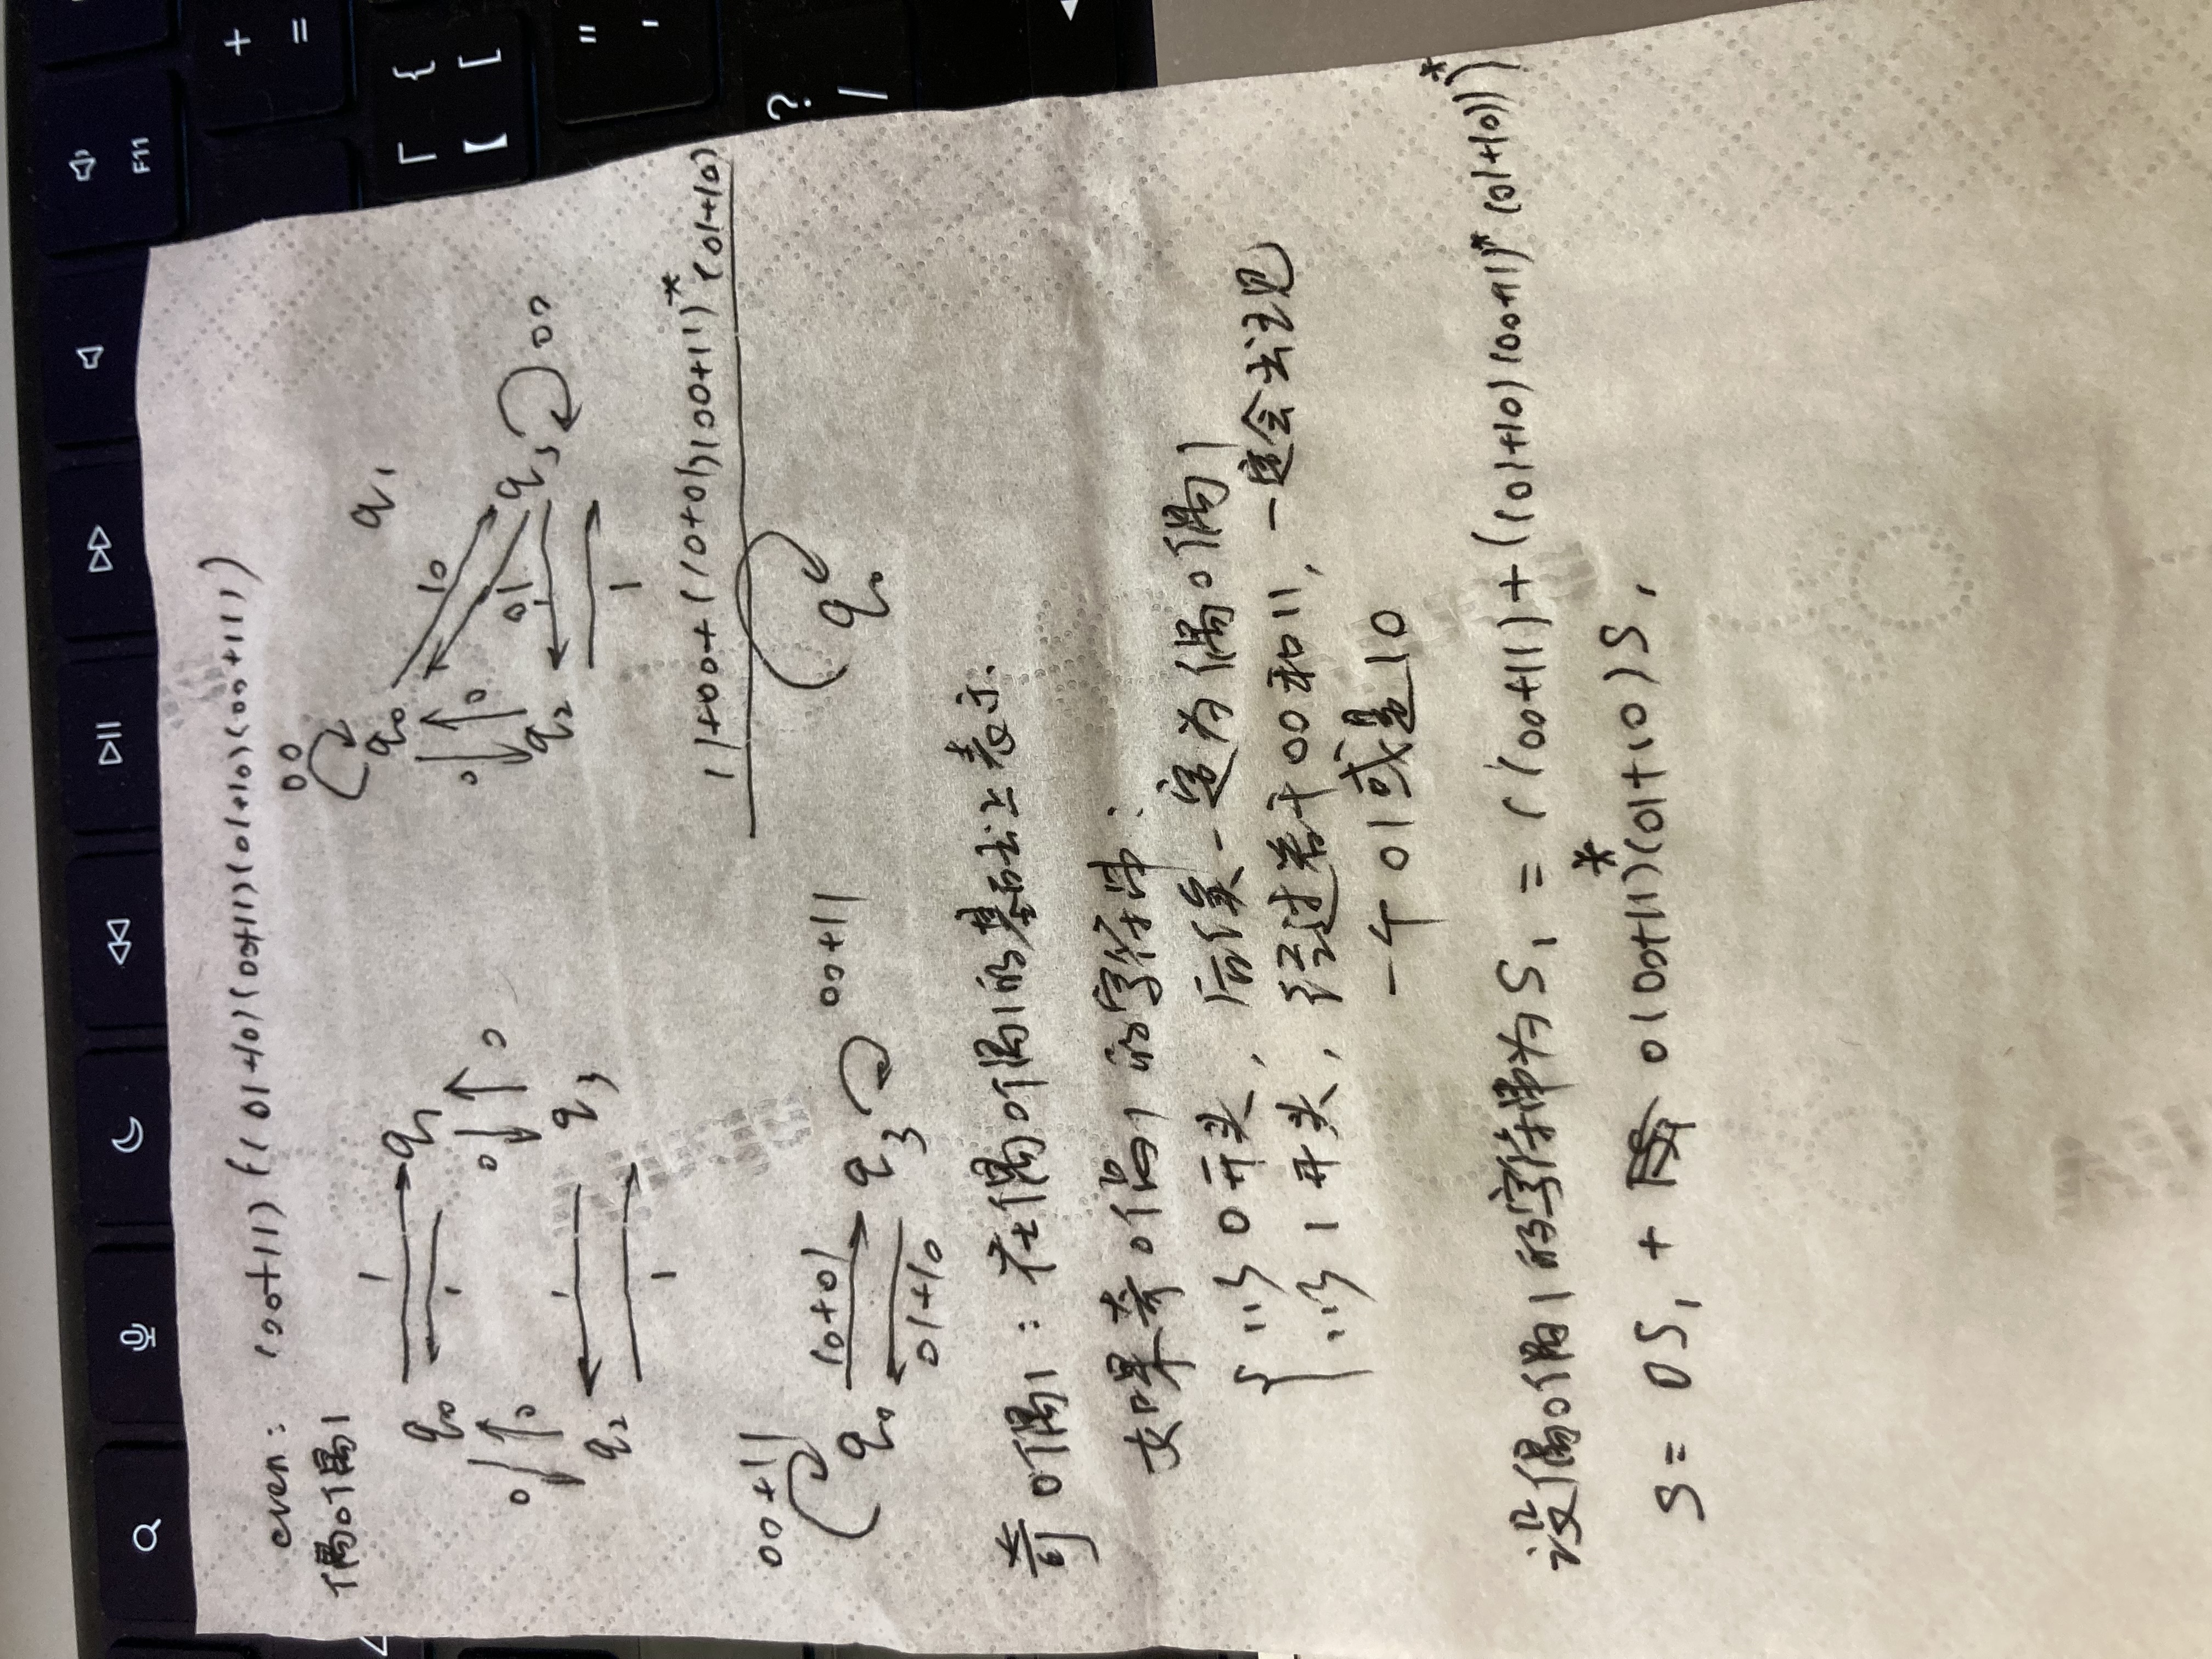 F11
+
=
「 {
【 [
"
'
?
/
even: (00+11)((01+10)(00+11)(01+10)(00+11))
偶0偶1
00
1
q0 q1
1
0 0 0 0
1
q2 q3
1
q0 q1
10
0 0 01
q2 1 q3 00
1
11+00+(10+01)(00+11)*(01+10)
q0
00+11
10+01
q0 q3 00+11
01+10
奇0偶1：在偶0偶1的基础上表示.
如果奇0偶1的字符串：
以0开头，后续一定为偶0偶1
以1开头，经过若干00和11，一定会出现
一个01或是10
设偶0偶1的字符串为S1 = ((00+11)+((01+10)(00+11)*(01+10)))*
S= 0S1 + 0(00+11)*(01+10)S1